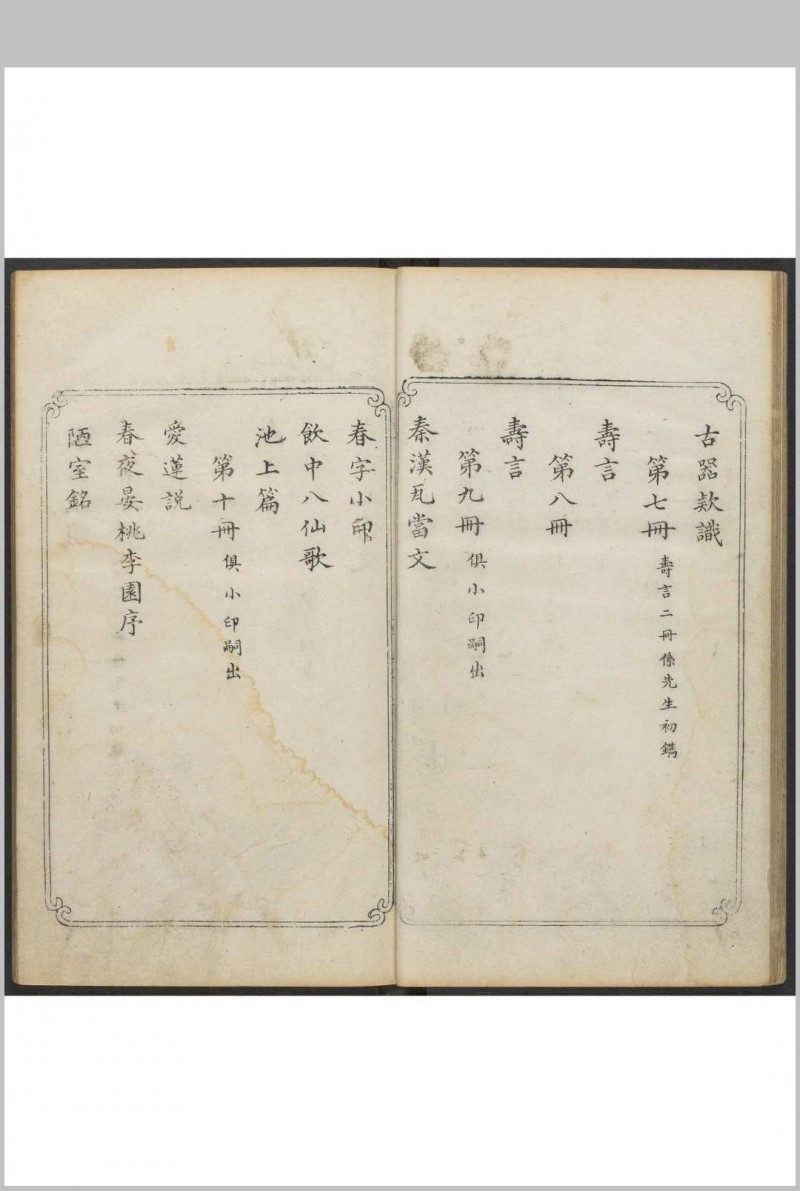 古器款識
第七冊 壽言二冊係先生初鐫
壽言
第八冊
壽言
第九冊 俱小印嗣出
秦漢瓦當文
春字小印
飲中八仙歌
池上篇
第十冊 俱小印嗣出
愛蓮説
春夜晏桃李園序
陋室銘